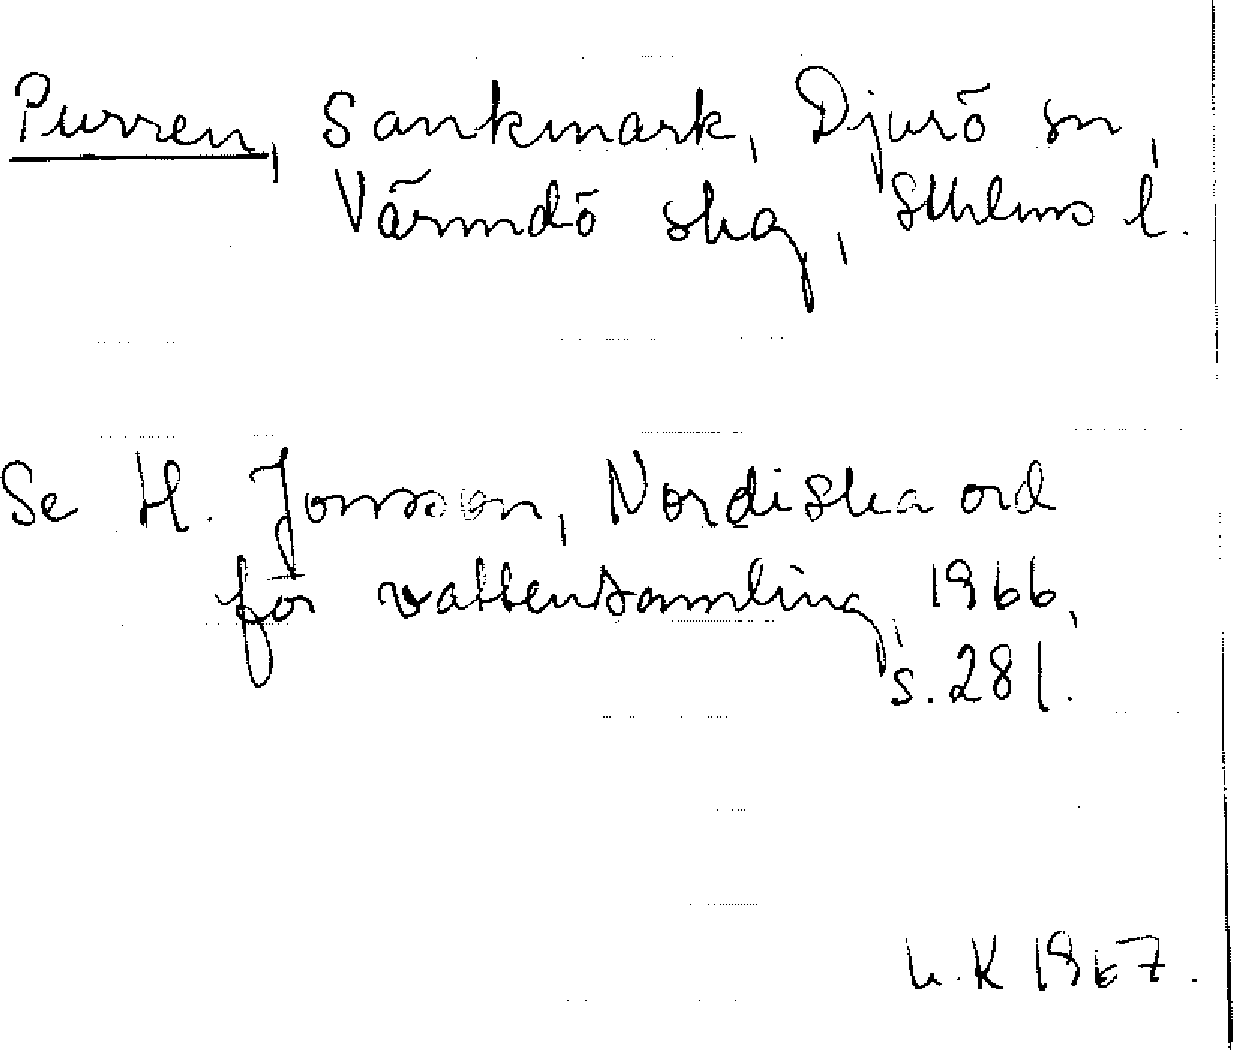 Purren, Sankmark, Djurö sn,
Värmdö skg, Sthlms l.
Se H. Jonsson, Nordiska ord
för vattensamling, 1966,
s. 281.
h.K 1967.